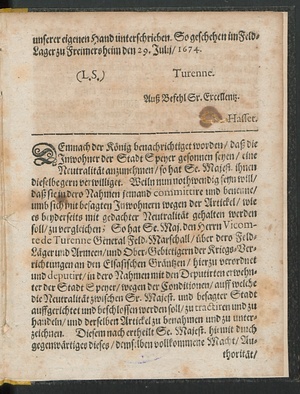 unserer eigenen Hand unterschrieben. So geschehen im Feld-
Lager zu Freimersheim den 29. Julij/ 1674.
(L.S.) Turenne.
Auß Befehl Sr. Excellentz.
Hasset.
DEmnach der König benachrichtiget worden/ daß die
Inwohner der Stadt Speyer gesonnen seyen/ eine
Neutralität anzunehmen/ so hat Se. Majest. ihnen
dieselbe gern verwilliget. Weiln nun nothwendig seyn will/
daß sie in dero Nahmen jemand committire und benenne/
umb sich mit besagten Inwohnern wegen der Artikel/ wie
es beyderseits mit gedachter Neutralität gehalten werden
soll/ zu vergleichen; So hat Se. Maj. den Herrn Vicom-
te de Turenne General Feld-Marschall/ über dero Feld-
Läger und Armeen/ und Ober-Gebietigern der Kriegs-Ver-
richtungen an den Elsasischen Gräntzen/ hierzu verordnet
und deputirt, in dero Nahmen mit den Deputirten erwehn-
ter der Stadt Speyer/ wegen der Conditionen/ auff welche
die Neutralität zwischen Sr. Majest. und besagter Stadt
auffgerichtet und beschlossen werden soll/ zu tractiren und zu
handeln/ und derselben Artikel zu benahmen und zu unter-
zeichnen. Diesem nach ertheilt Se. Majest. hiemit durch
gegenwärtiges dieses/ demselben vollkommene Macht/ Au-
thorität/